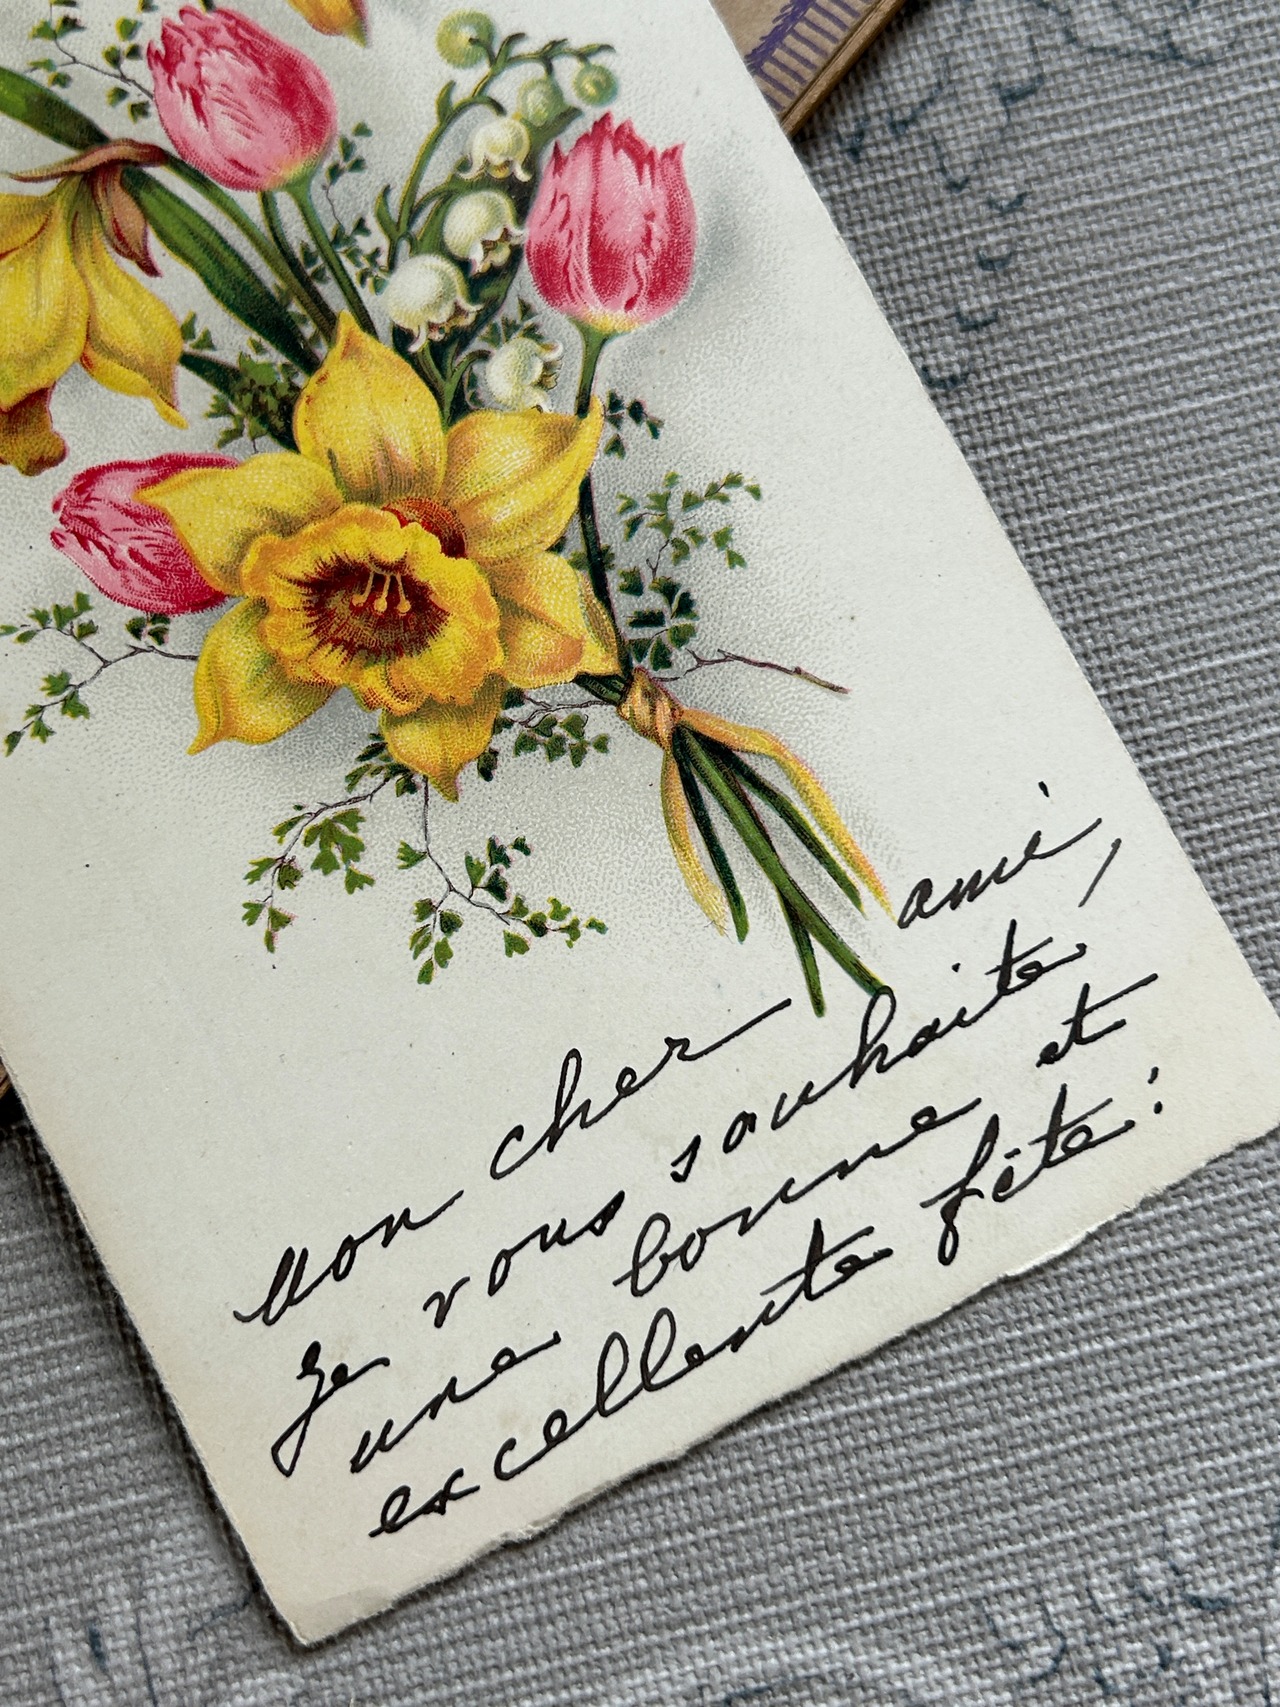 Mon cher ami,
Je vous souhaite
une bonne et
excellente fête!